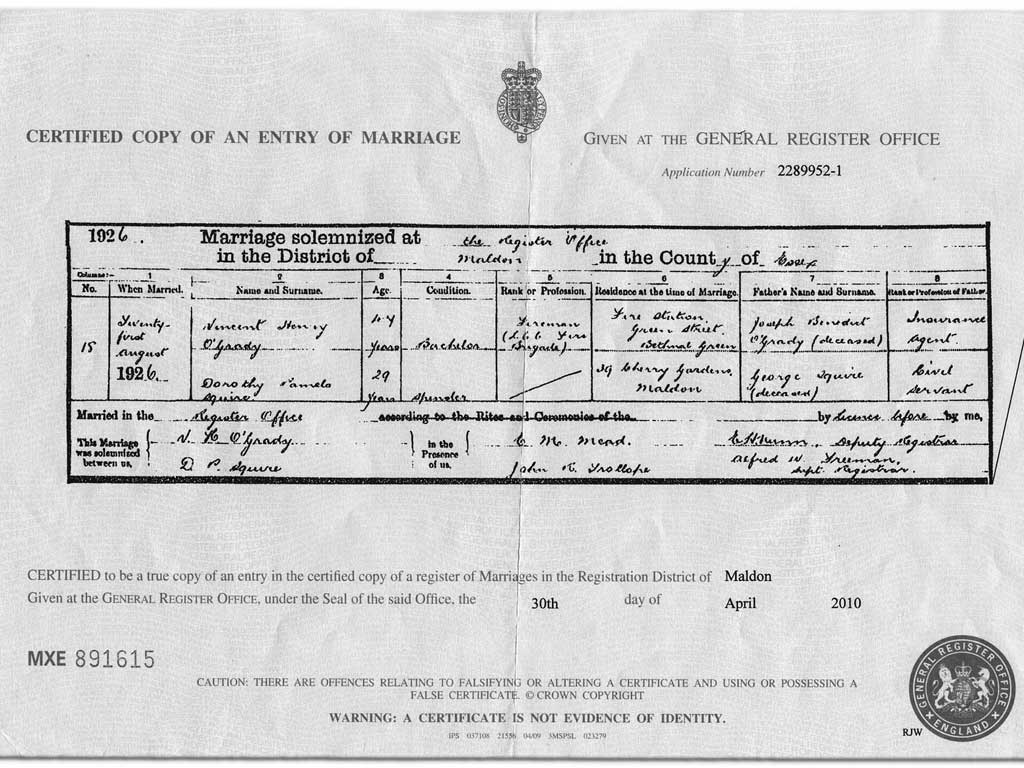 CERTIFIED COPY OF AN ENTRY OF MARRIAGE
GIVEN AT THE GENERAL REGISTER OFFICE
Application Number 2289952-1
1926. Marriage solemnized at the Register Office
in the District of Maldon in the County of Essex
Columns:— 1 2 3 4 5 6 7 8
No. When Married. Name and Surname. Age. Condition. Rank or Profession. Residence at the time of Marriage. Father's Name and Surname. Rank or Profession of Father.
15 Twenty-first August 1926.
Vincent Henry O'Grady
44 years
Bachelor
Fireman (L.C.C. Fire Brigade)
Fire Station, Green Street, Bethnal Green
Joseph Benedict O'Grady (deceased)
Insurance Agent.
Dorothy Pamela Squire
29 years
Spinster
39 Cherry Gardens, Maldon
George Squire (deceased)
Civil Servant
Married in the Register Office according to the Rites and Ceremonies of the by licence before by me,
This Marriage was solemnized between us,
V. H. O'Grady
D. P. Squire
in the Presence of us,
C. M. Mead.
John K. Trollope
Deputy Registrar
Alfred W. Freeman, Supt. Registrar.
CERTIFIED to be a true copy of an entry in the certified copy of a register of Marriages in the Registration District of Maldon
Given at the GENERAL REGISTER OFFICE, under the Seal of the said Office, the 30th day of April 2010
MXE 891615
CAUTION: THERE ARE OFFENCES RELATING TO FALSIFYING OR ALTERING A CERTIFICATE AND USING OR POSSESSING A
FALSE CERTIFICATE. © CROWN COPYRIGHT
WARNING: A CERTIFICATE IS NOT EVIDENCE OF IDENTITY.
IPS 037108 21556 04/09 3MSPSL 023279
GENERAL REGISTER OFFICE
ENGLAND
RJW